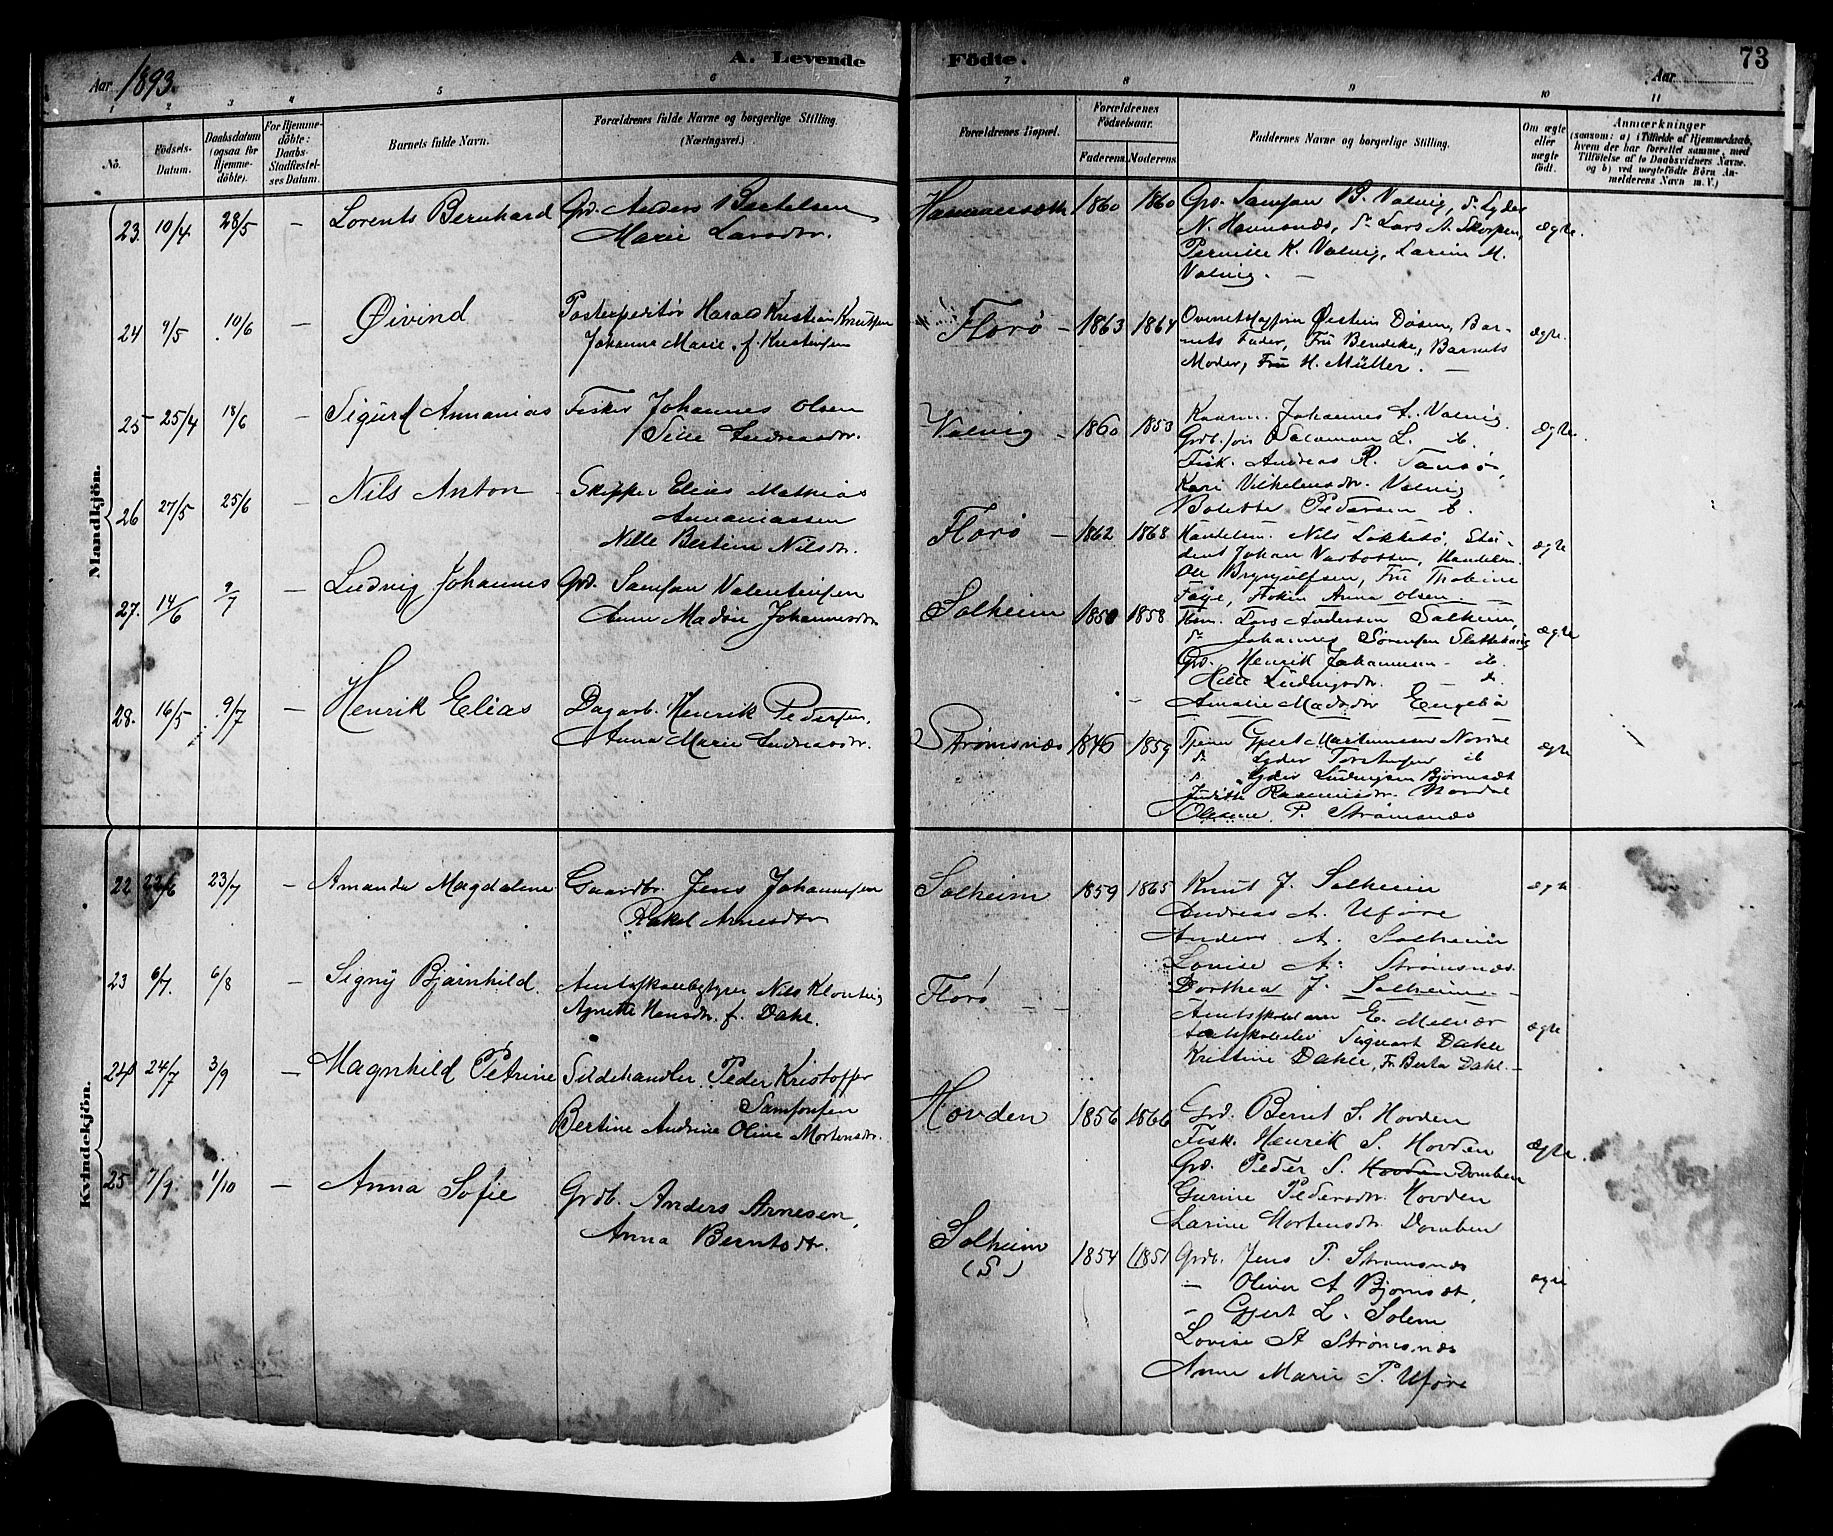 Aar 1893.
A. Levende Födte.
Aar
73
1 2 3 4 5 6 7 8 9 10 11
No.
Födsels-Datum.
Daabsdatum (ogsaa for Hjemme-döbte).
For Hjemme-döbte: Daabs-Stadfæstel-ses Datum.
Barnets fulde Navn.
Forældrenes fulde Navne og borgerlige Stilling. (Næringsvei.)
Forældrenes Bopæl.
Forældrenes Födselsaar.
Faderens. Moderens.
Faddernes Navne og borgerlige Stilling.
Om ægte eller uægte födt.
Anmærkninger
(saasom: a) i Tilfælde af Hjemmedaab,
hvem der har forrettet samme, med
Tilföielse af to Daabsvidners Navne.
og b) ved uægtefödte Börn An-
melderens Navn m. V.)
Mandkjön.
23. 10/4 28/5 — Lorents Bernhard
Grd. Anders Bertelsen
Marie Larsdtr.
1860 1860
Grd. Samson B. Valvig, do Lyder
N. Havnnæs, do Lars A. Skorpen,
Pernille K. Valvig, Larine M.
Valvig. —
ægte.
24 9/5 10/6 — Øivind
Postexpeditør Harald Kristian Knutsen
Johanna Marie, f. Kristensen
Florø — 1863 1864
Øistein Døsen, Bar-
nets Fader, Fru Bendeke, Barnets
Moder, Fru H. Müller. —
ægte.
25 25/4 18/6 — Sigurd Annanias
Fisker Johannes Olsen
Sille Andreasdtr.
Valvig — 1860 1853
Johannes A. Valvig
Salamon L. ib.
Fisk. Andreas R. Tansø,
Kari Vilhelmsdtr. Valvig
Bolette Pedersen ib.
ægte.
26 27/5 25/6 — Nils Anton
Skipper Elias Mathias
Annaniassen
Nille Bertine Nilsdtr.
Florø — 1862 1868
Handelsm. Nils Løkkebø, Stu-
dent Johan Varbosten, Handelsm.
Ole Brynjulfsen, Fru Thobine
Anna Olsen. —
ægte
27. 14/6 9/7 — Ludvig Johannes
Grd. Samson Valentinsen
Anne Madsine Johannesdtr.
Solheim 1850 1858
Lars Andersen Solheim,
do Johannes Sørensen
Grd. Henrik Johannesen — ib.
Hille Ludvigsdtr. — do.
Amalie Madsdtr Engebø
ægte
28. 16/5 9/7 — Henrik Elias
Dagarb. Henrik Pedersen.
Anna Marie Andreasdtr.
Strømsnæs 1846 1859
Gjert Martinussen Nordal
do Lyder Torstensen ib
do Lyder Ludvigsen Bjørnsæt
Judith Rasmusdtr. Nordal
Olesine P. Strømsnæs
ægte
Kvindekjön.
22 22/6 23/7 — Amanda Magdalene
Gaardbr. Jens Johannesen
Rakel Arnesdtr
Solheim 1859 1865
Knut J. Solheim
Andreas A. Uføre
Anders A. Solheim
Lovise A. Strømsnæs.
Dorthea J. Solheim —
ægte
23 6/7. 6/8 — Signy Bjarnhild.
Nils Kloning
Agnette Hansdtr. f. Dahl.
Florø —
E. Melvær
Sigvart Dahle
Kristine Dahle, Fr. Berta Dahl. —
ægte
24 24/7 3/9 — Magnhild Petrine
Sildehandler Peder Kristoffer
Samsonsen
Bertine Andrine Oline Mortensdtr.
Hovden 1856 1866
Grd. Bernt S. Hovden
Fisk. Henrik S. Hovden
Grd. Peder S. Hovden Domben
Gurine Pedersdtr. Hovden
Larine Mortensdtr. Domben
ægte.
25 7/9. 1/10 — Anna Sofie
Grdb. Anders Arnesen,
Anna Berntsdtr.
Solheim
(S)
1854 (1851
Grdb. Jens P. Strømsnæs
— Oliver A Bjørnsæt,
— Gjert L. Solem
Lovise A Strømsnæs
Anne Marie P. Uføre
ægte